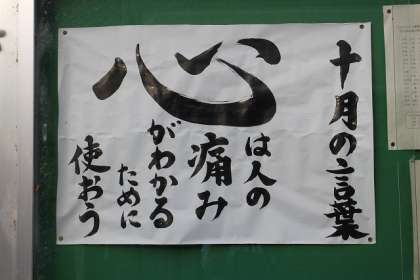 十月の言葉
心
は人の
痛み
がわかる
ために
使おう